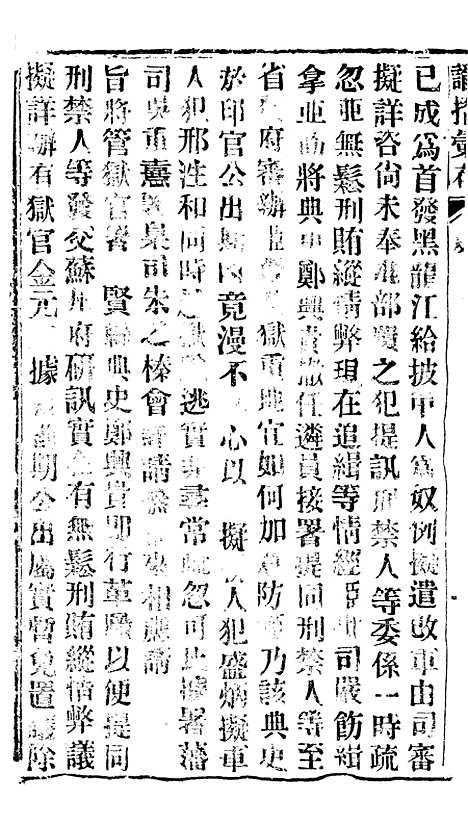 已成爲首發黑龍江給披甲人爲奴例擬遣改軍由司審
擬詳咨尙未奉部覆之犯提訊刑禁人等委係一時疏
忽並無鬆刑賄縱情弊現在追緝等情經臣司嚴飭緝
拿並將典史鄭興貴撤任遴員接署提同刑禁人等至
省府審辦獄重地宜如何加防乃該典史
於印官公出期內竟漫不心以擬人犯盛炳擬軍
人犯邢洼和同時逃實非尋常疏忽可比據署藩
司吳重憙臬司朱之榛會詳請相應請
旨將管獄官署賢典史鄭興貴卽行革職以便提同
刑禁人等發交蘇州府硏訊實在有無鬆刑賄縱情弊議
擬詳辦有獄官金元據期公出屬實暫免置議除